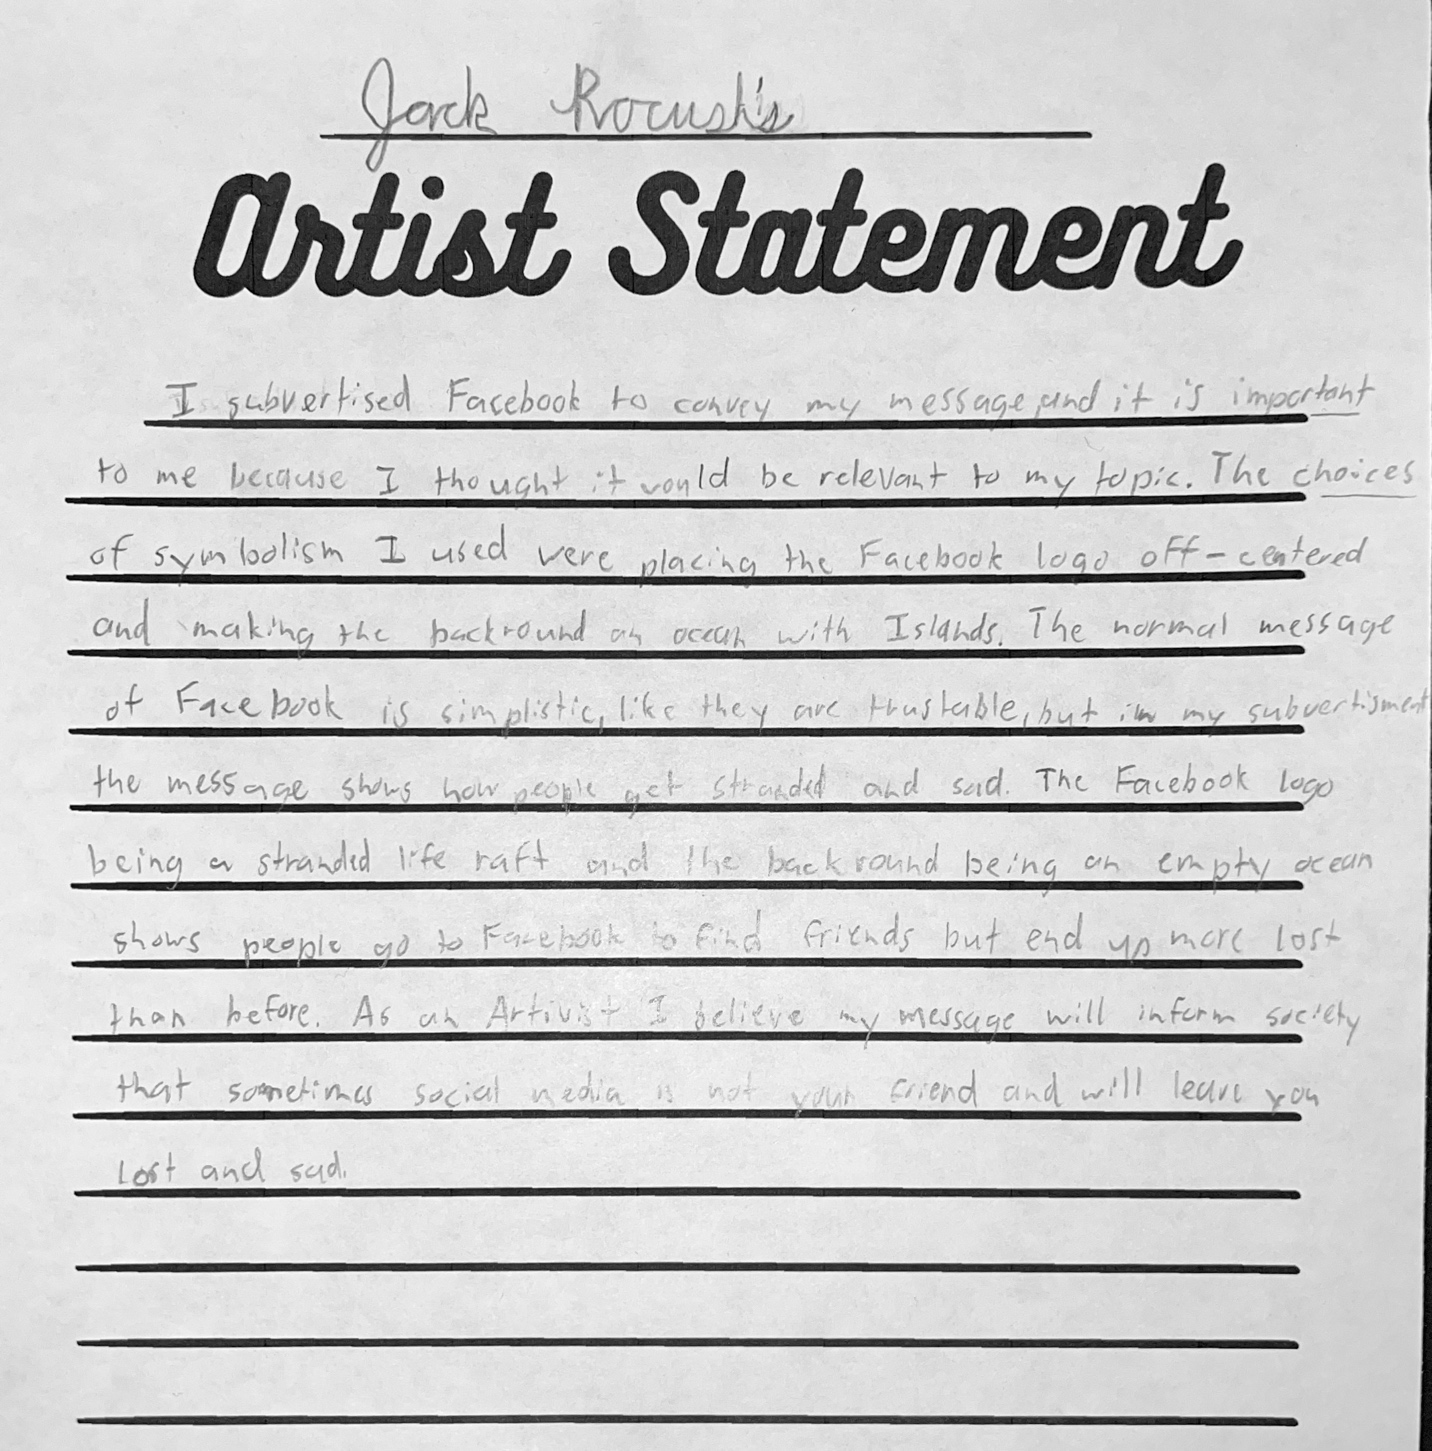 Jack Rocush's
Artist Statement
I subvertised Facebook to convey my message and it is important
to me because I thought it would be relevant to my topic. The choices
of symbolism I used were placing the Facebook logo off-centered
and making the backround an ocean with Islands. The normal message
of Facebook is simplistic, like they are trustable, but in my subvertisment
the message shows how people get stranded and sad. The Facebook logo
being a stranded life raft and the backround being an empty ocean
shows people go to Facebook to find friends but end up more lost
than before. As an Artivist I believe my message will inform society
that sometimes social media is not your friend and will leave you
lost and sad.